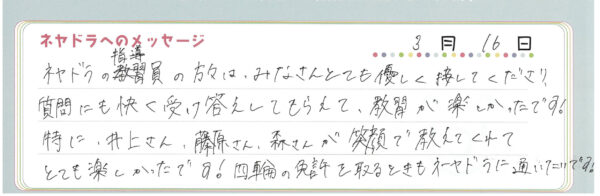 ネヤドラへのメッセージ
3月16日
ネヤドラの指導員の方々は、みなさんとても優しく接してくださり、
質問にも快く受け答えしてもらえて、教習が楽しかったです!
特に、井上さん、藤原さん、森さんが笑顔で教えてくれて
とても楽しかったです!四輪の免許を取るときもネヤドラに通いたいです!